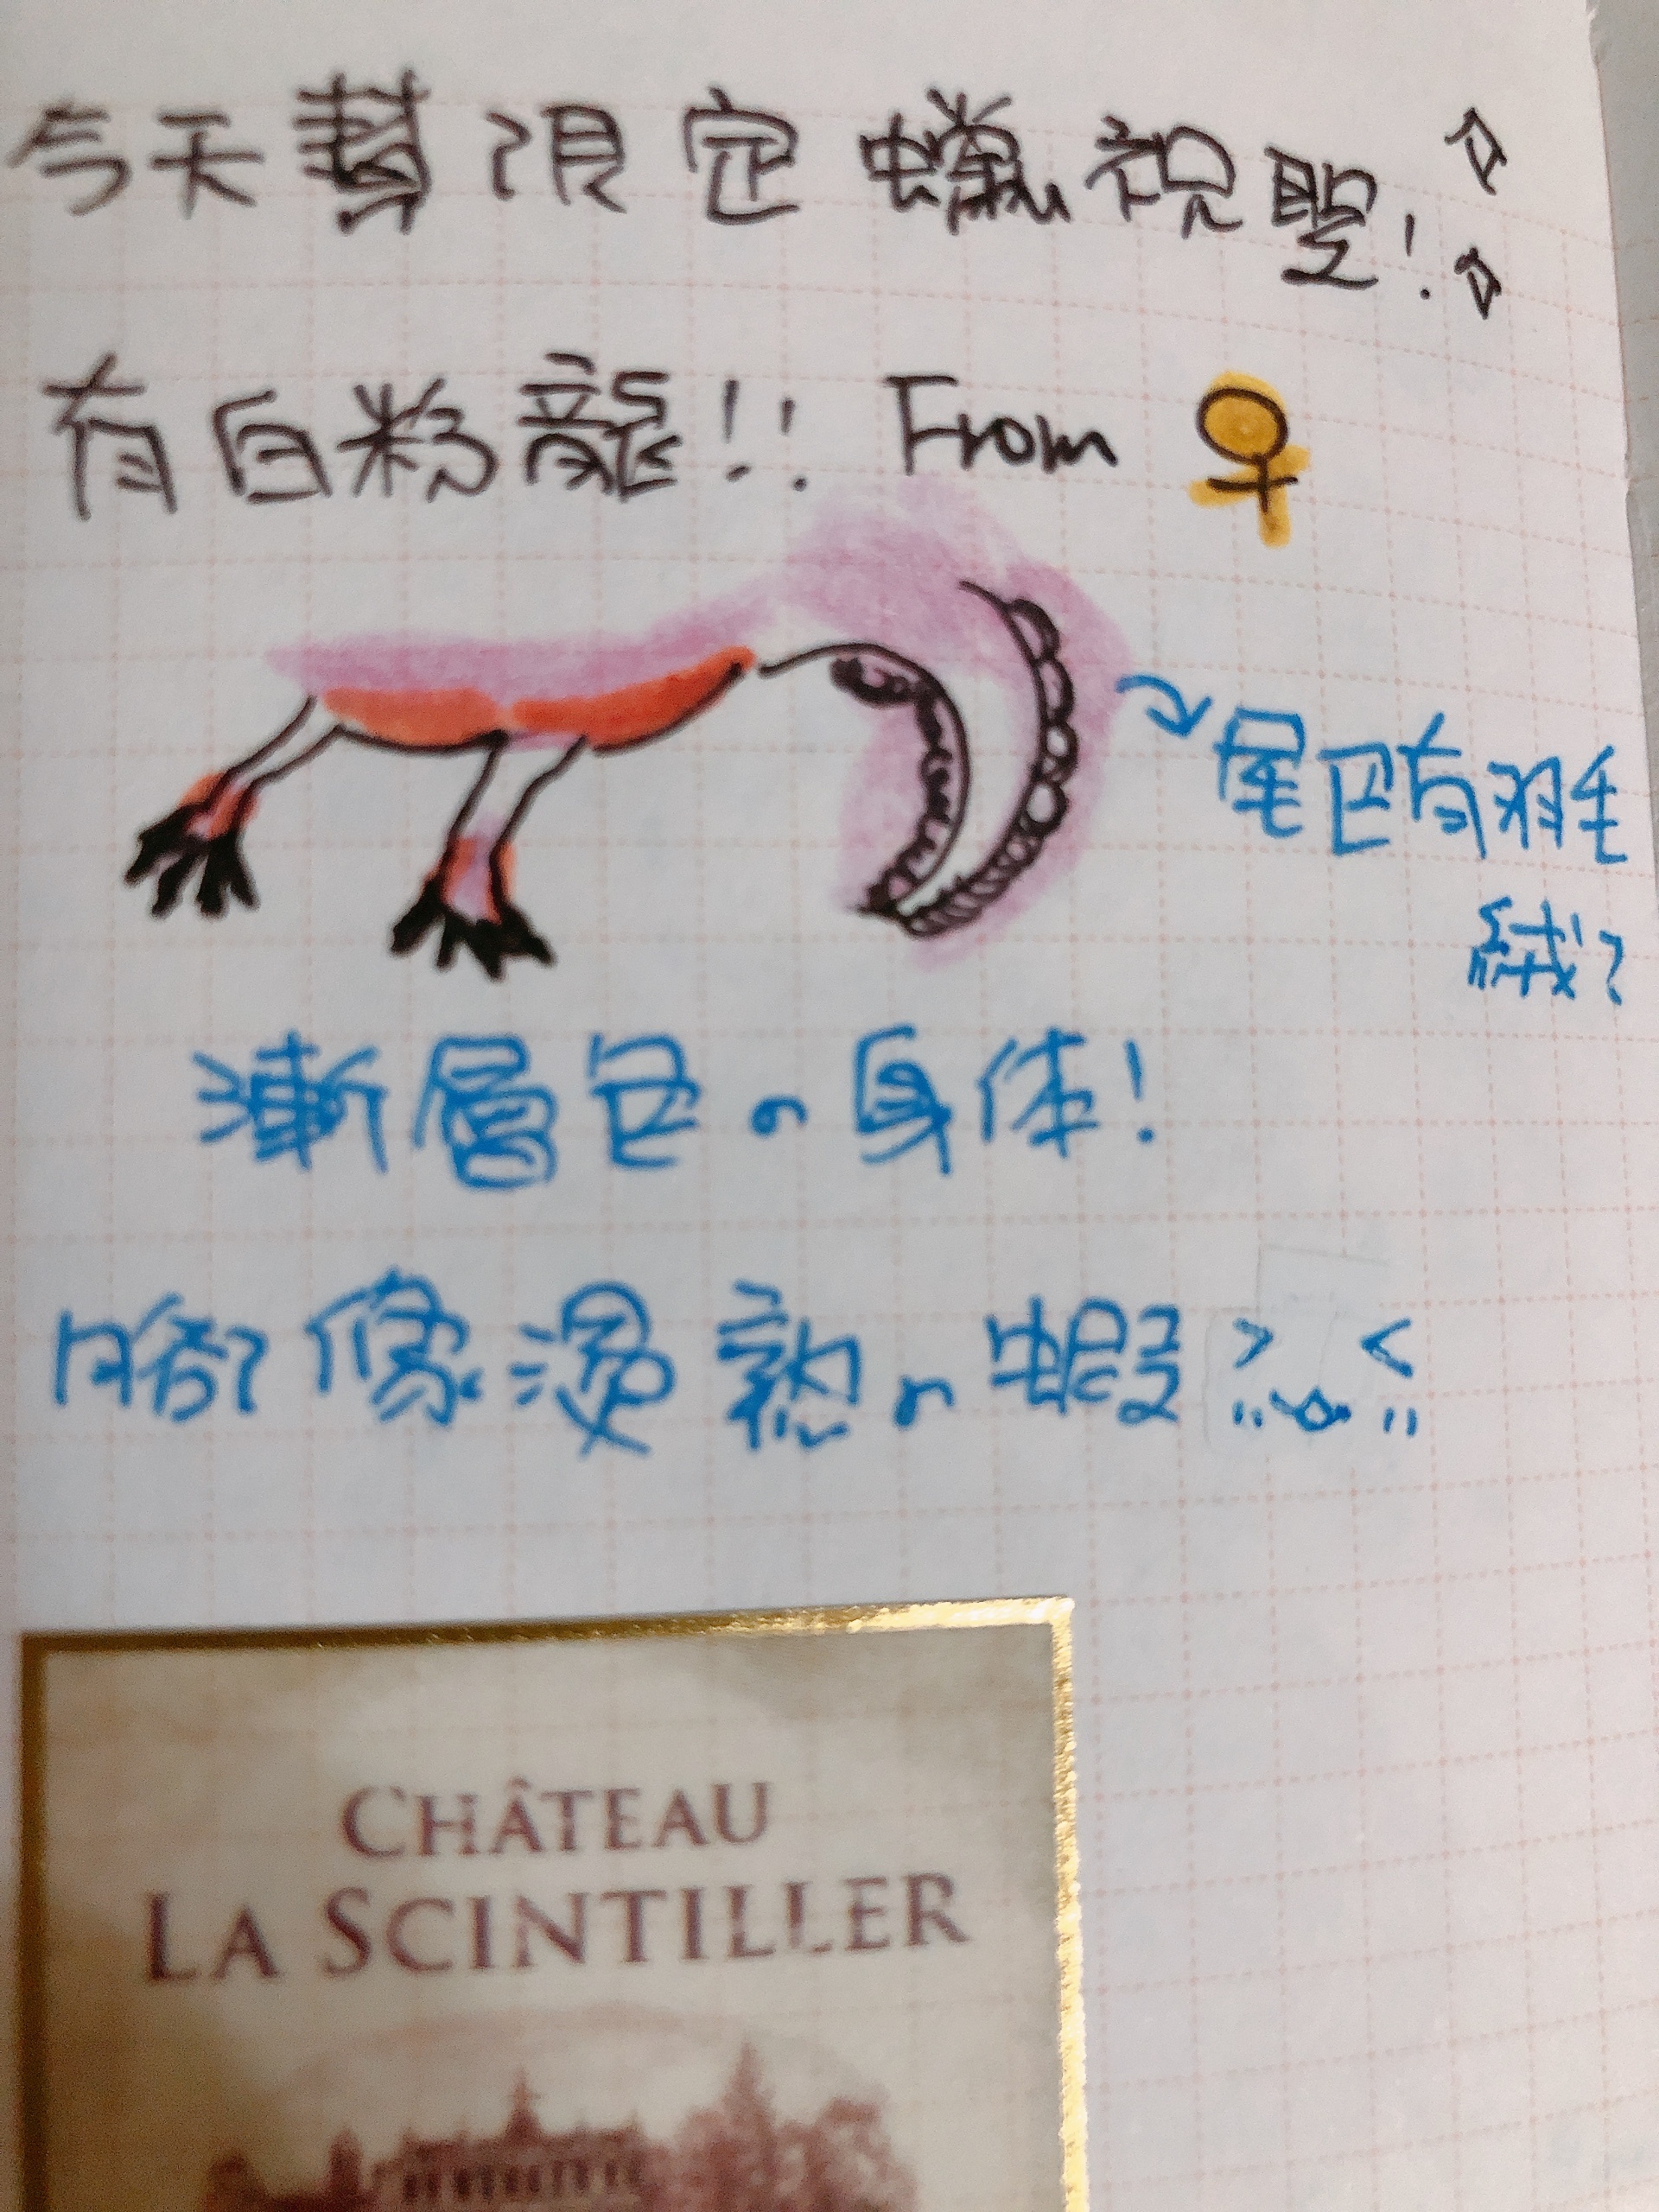 今天幫限定蠟祝聖!
有白粉龍!! From ♀
尾巴有羽毛
絨?
漸層色の身体!
腳像燙熟の蝦
CHÂTEAU
LA SCINTILLER